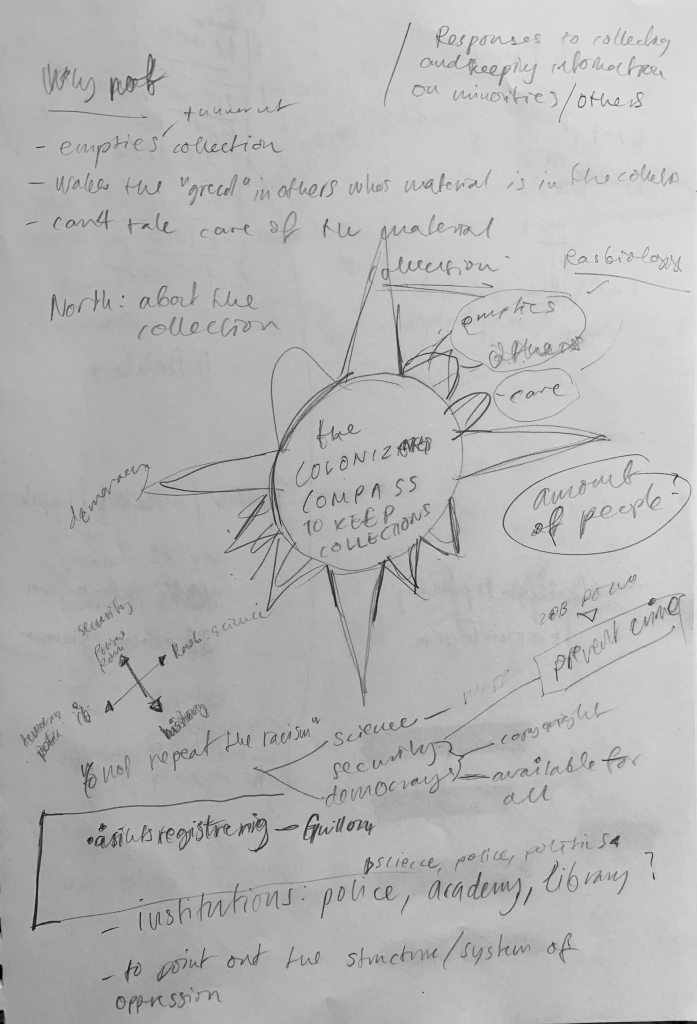 Responses to collecting
and keeping information
on minorities/others
Why not
- empties collection
- wakes the "greed" in others whos material is in the
- can't take care of the material
Rasbiologi
North: about the
collection
empties
others
- care
the
COLONIZING
COMPASS
TO KEEP
COLLECTIONS
democracy
amount
of people
security
science
prevent crime
"to not repeat the racism"
science -
security
democracy
copyright
available for
all
• åsiktsregistrering - Guillou
science, police, politics
- institutions: police, academy, library?
- to point out the structure/system of
oppression